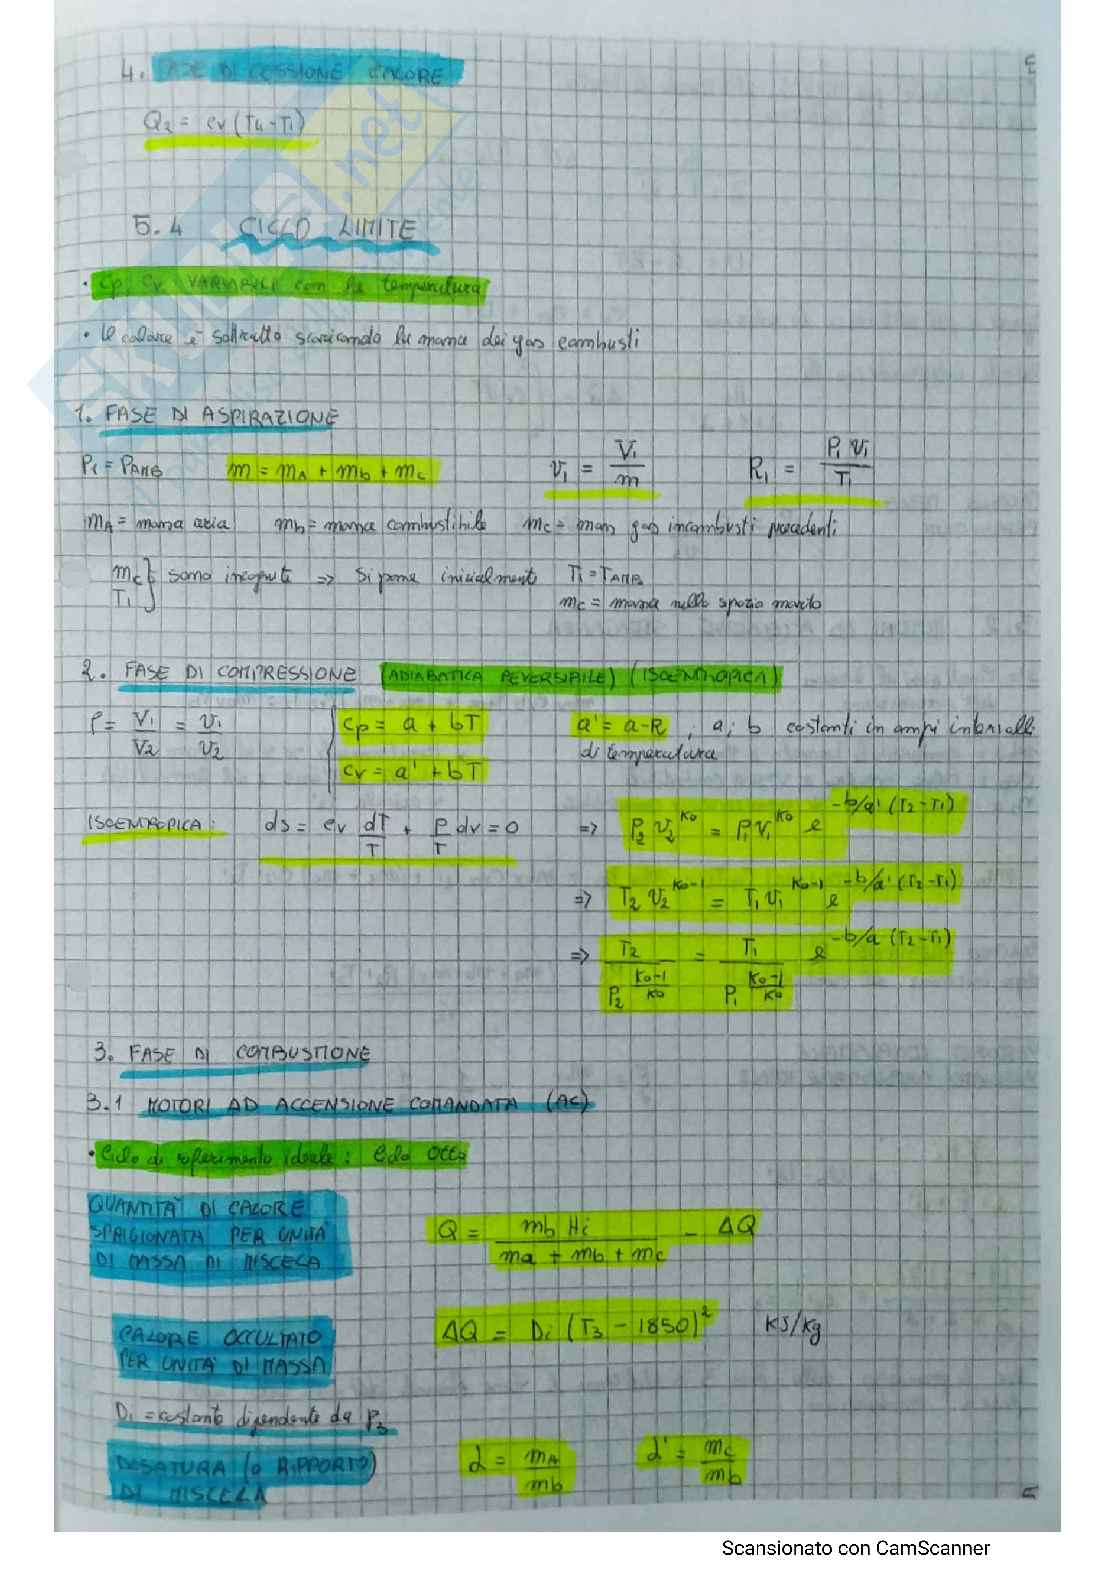 4. FASE DI CESSIONE CALORE
Q2 = cv (T4 - T1)
5.4 CICLO LIMITE
• cp, cv VARIABILI con la temperatura
• Il calore è sottratto scaricando la massa dei gas combusti
1. FASE DI ASPIRAZIONE
P1 = PAMB m = mA + mb + mc v1 = V1/m R1 = P1 v1/T1
mA = massa aria mb = massa combustibile mc = mass gas incombusti precedenti
mc T1} sono incognite => Si pone inizialment T1 = TAMB
mc = massa nello spazio morto
2. FASE DI COMPRESSIONE (ADIABATICA REVERSIBILE) (ISOENTROPICA)
ρ = V1/V2 = v1/v2 { cp = a + bT a' = a - R ; a; b costanti in ampi intervalli
di temperatura
cv = a' + bT
ISOENTROPICA: ds = cv dT/T + P/T dv = 0 => P2 v2^K0 = P1 v1^K0 e^-b/a' (T2-T1)
=> T2 v2^K0-1 = T1 v1^K0-1 e^-b/a' (T2-T1)
=> T2/P2^(K0-1/K0) = T1/P1^(K0-1/K0) e^-b/a (T2-T1)
3. FASE DI COMBUSTIONE
3.1 MOTORI AD ACCENSIONE COMANDATA (AC)
• Ciclo di riferimento ideale: Ciclo Otto
QUANTITÀ DI CALORE
SPRIGIONATA PER UNITÀ
DI MASSA DI MISCELA
Q = mb Hi/(ma + mb + mc) - ΔQ
CALORE OCCULTATO
PER UNITÀ DI MASSA
ΔQ = Di (T3 - 1850)^2 KJ/kg
Di = costante dipendente da P3
DOSATURA (O RAPPORTO)
DI MISCELA
α = mA/mb α' = mc/mb
Scansionato con CamScanner